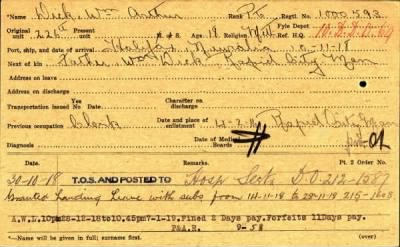 Name Dick, Wm Arthur Rank Pte Regtl. No. 1000593
Original unit 226th Present unit M. or S. S Age 18 Religion Meth Ref. H.Q.
Port, ship, and date of arrival Halifax 10-11-18
Next of kin Father Wm Dick Rapid City Man
Address on leave
Address on discharge
Transportation issued No Date Character on discharge
Previous occupation Clerk Date and place of enlistment Rapid City Man
Diagnosis Date of Medical Boards
Date Remarks Pt. 2 Order No.
30-10-18 T.O.S. AND POSTED TO Hosp Sect D.O. 212-1587
Granted Landing Leave with subs from 14-11-18 to 28-11-18 215-1603
A.W.L. 10pm 28-12-18 to 10.45pm 7-1-19. Fined 2 Days pay. Forfeits 11 Days pay.
P&A.R. 9-58
*Name will be given in full; surname first.